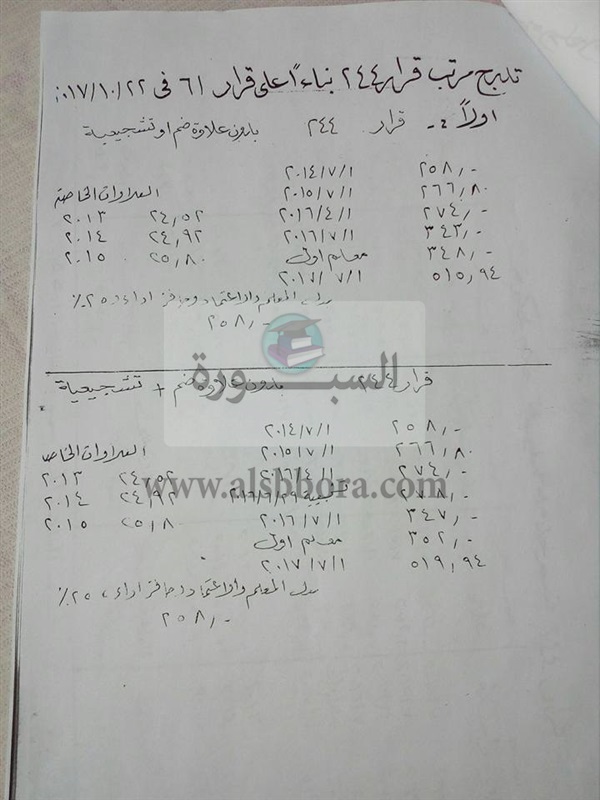 تدرج مرتب قرار ٢٤٤ بناءاً على قرار ٦١ فى ٢٠١٧/١٠/٢٢:
اولاً :- قرار ٢٤٤ بدون علاوة ضم او تشجيعية
٢٥٨,- ٢٠١٤/٧/١
٢٦٦,٨٠ ٢٠١٥/٧/١ العلاوات الخاصة
٢٧٤,- ٢٠١٦/٤/١ ٢٤,٥٢ ٢٠١٣
٣٤٣,- ٢٠١٦/٧/١ ٢٤,٩٢ ٢٠١٤
٣٤٨,- معلم اول ٢٥,٨٠ ٢٠١٥
٥١٥,٩٤ ٢٠١٧/٧/١
بدل المعلم والاعتماد وحافز اداء ٢٥٪
٢٥٨,-
السبورة
قرار ٢٤٤ بدون علاوة ضم + تشجيعية
٢٥٨,- ٢٠١٤/٧/١
٢٦٦,٨٠ ٢٠١٥/٧/١ العلاوات الخاص
٢٧٤,- ٢٠١٦/٤/١ ٢٤,٥٢ ٢٠١٣
www.alsbbora.com
٢٧٨,- ٢٠١٦/٦/٢٩ ٢٤,٩٢ ٢٠١٤
٣٤٧,- ٢٠١٦/٧/١ ٢٥,٨٠ ٢٠١٥
٣٥٢,- معلم اول
٥١٩,٩٤ ٢٠١٧/٧/١
بدل المعلم والاعتماد وحافز اداء ٢٥٪
٢٥٨,-